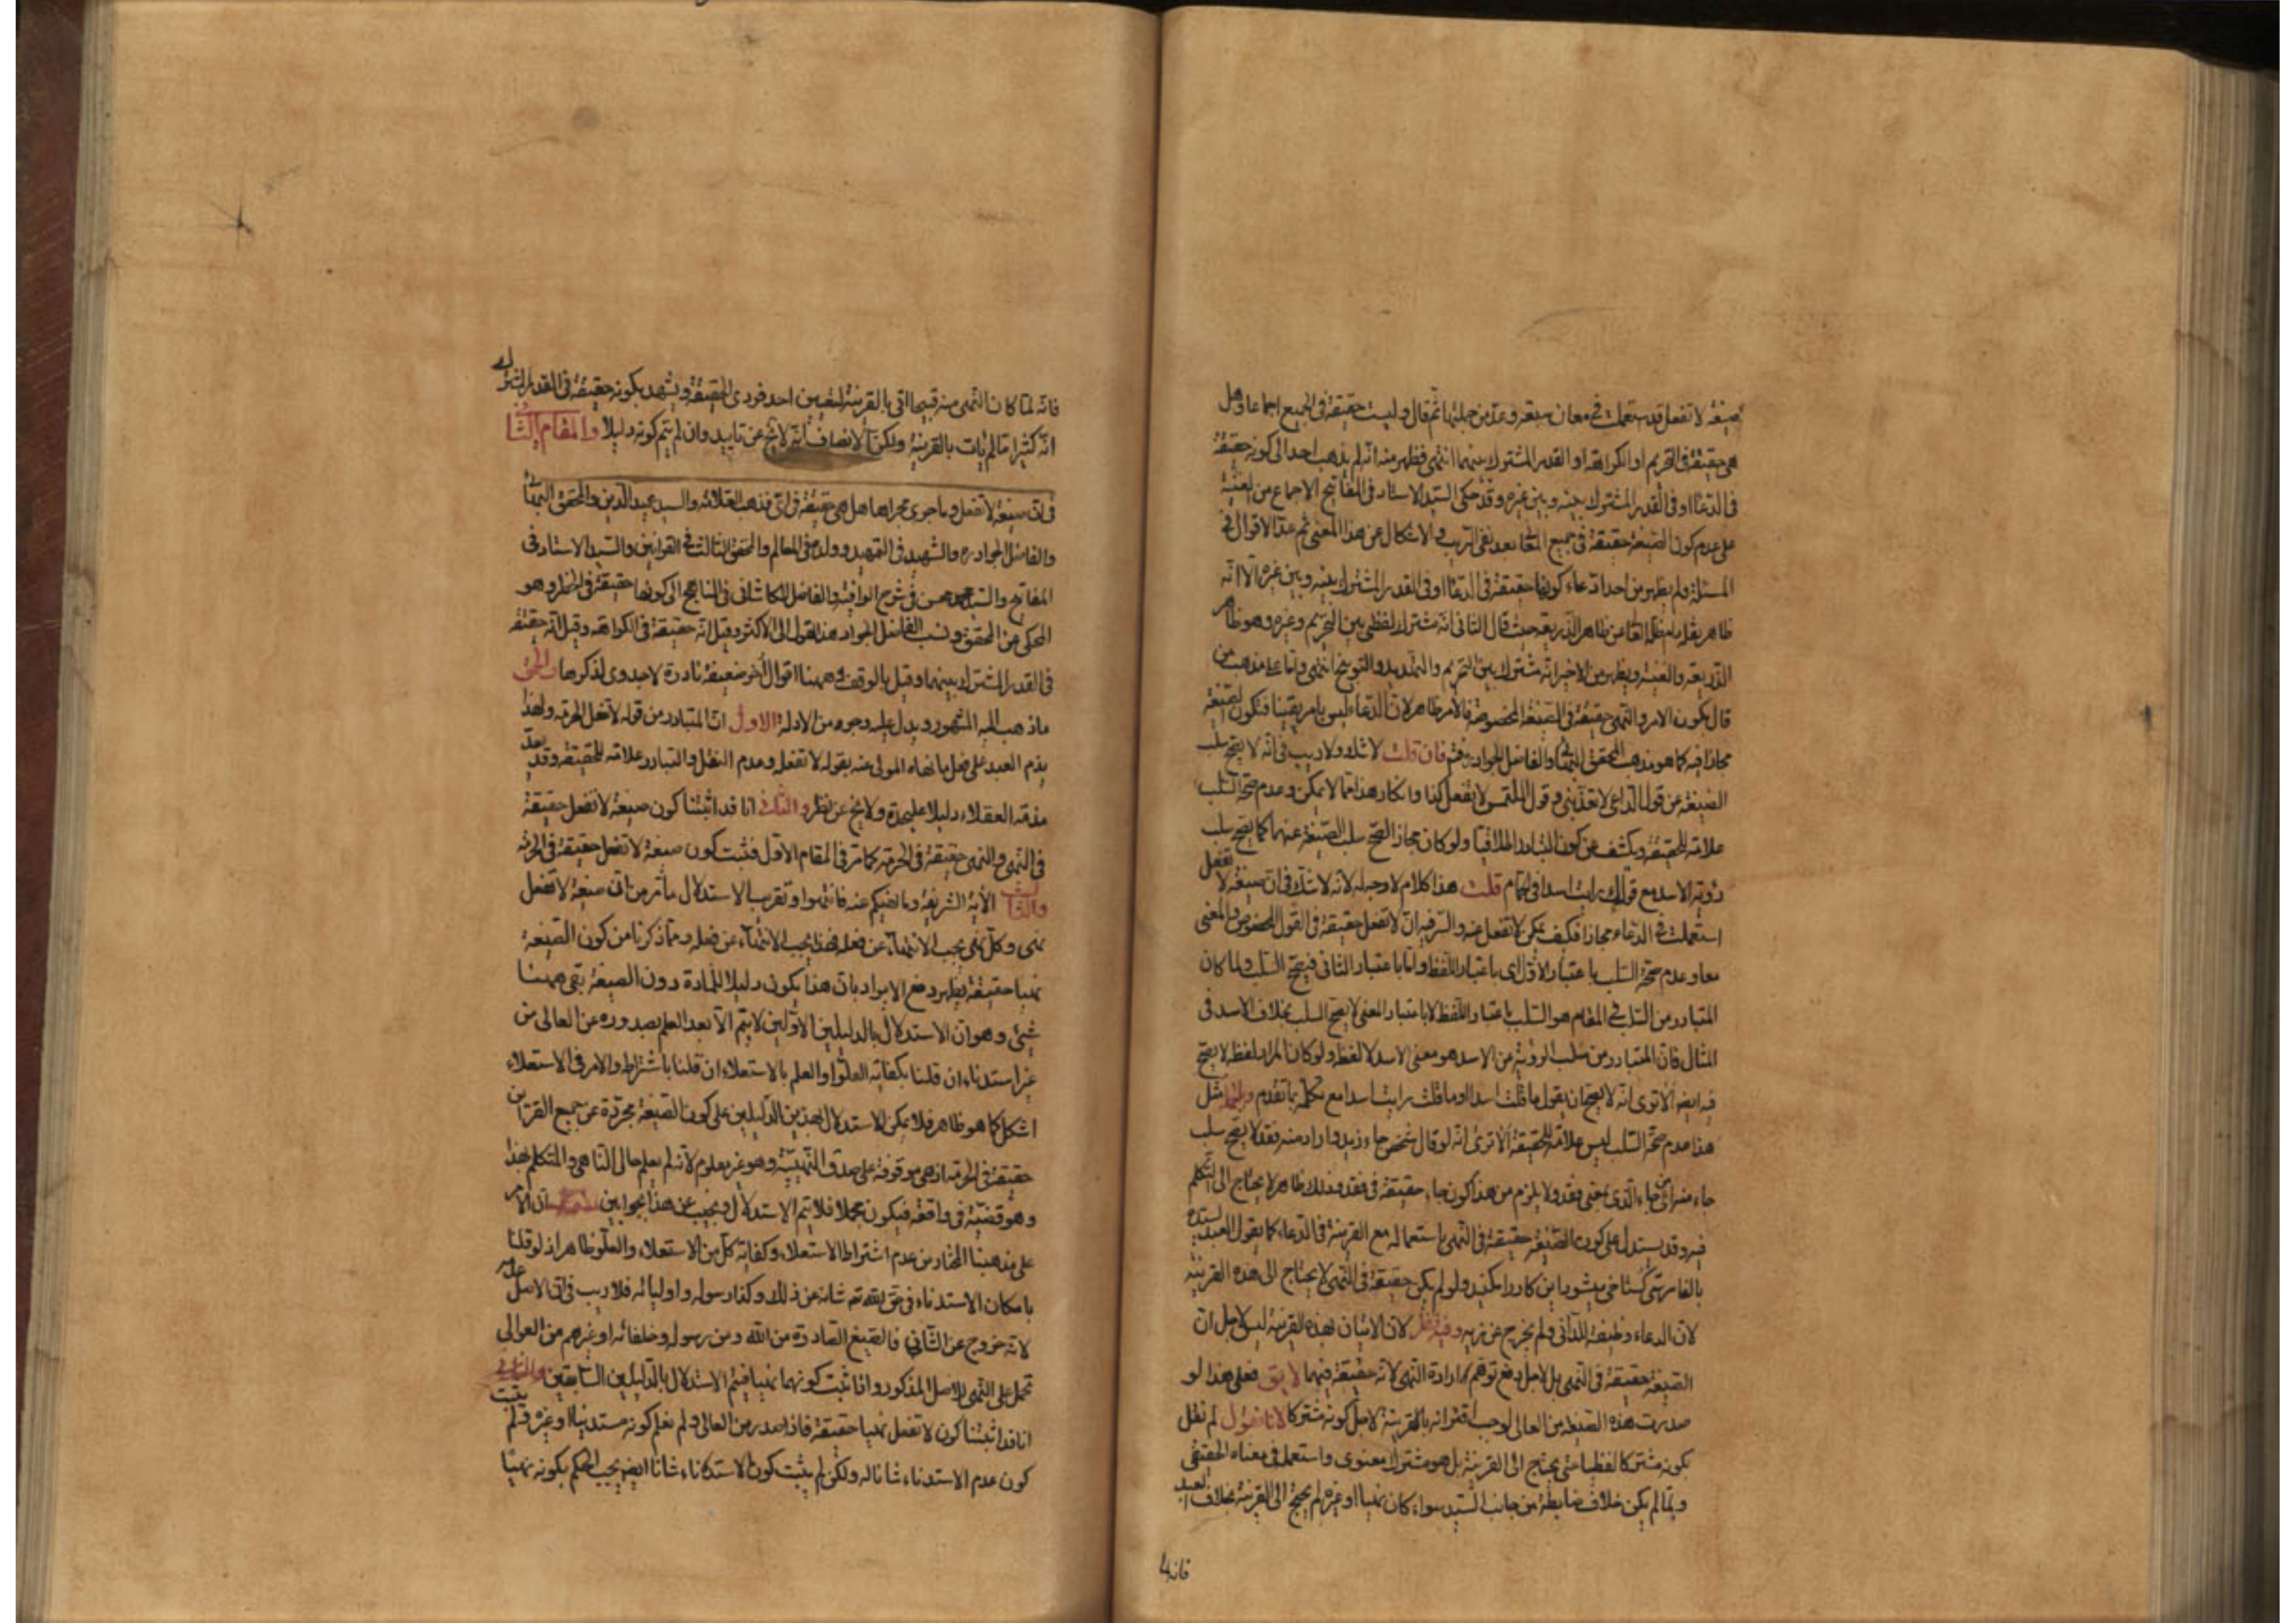 صيغة لا تفعل قد استعملت في معان سبعة وعد من جملتها ثم قال وليست حقيقة في الجميع اجماعا وهل
هي حقيقة في التحريم او الكراهة او القدر المشترك بينهما انتهى فظهر منه انه لم يذهب احد الى كونه حقيقة
في الدعاء او في القدر المشترك بينه وبين غيره وقد حكى السيد الاستاد في المفاتيح الاجماع من
على عدم كون الصيغة حقيقة في جميع المعا بعد نفى الريب والاشكال عن هذا المعنى ثم عد الاقوال في
المسئلة ولم يظهر من احد ادعاء كونها حقيقة في الدعاء او في القدر المشترك بينه وبين غيره الا انه
ظاهر عن ظاهر الذريعة حيث قال الثاني انه مشترك لفظي بين التحريم وغيره وهو ظاهر
الذريعة والغنية ويظهر من الاخير انه مشترك بين التحريم والتهديد والتوبيخ انتهى واما على مذهب من
قال بكون الامر والنهى حقيقة في الصيغة المخصوصة فالامر ظاهر لان الدعاء ليس بامر يقينا فتكون الصيغة
مجازا فيه كما هو مذهب المحقق الثالث والفاضل الجواد فان قلت لا شك ولا ريب في انه لا يصح سلب
الصيغة عن قول الداعى لا تعذبنى وقول الملتمس لا تفعل كذا وانكار هذا مما لا يمكن وعدم صحة السلب
علامة للحقيقة ويكشف عن كون التبادر اطلاقيا ولو كان مجازا لصح سلب الصيغة عنهما كما يصح سلب
رؤية الاسد مع قولك رايت اسدا في الحمام قلت هذا كلام لا وجه له لانه لا شك في ان صيغة لا تفعل
استعملت في الدعاء مجازا فكيف يمكن لا تفعل عنه والسر فيه ان لا تفعل حقيقة في القول المخصوص والمعنى
معا وعدم صحة السلب باعتبار الاول اى باعتبار اللفظ واما باعتبار الثاني فيصح السلب ولما كان
المتبادر من السلب في المقام هو السلب باعتبار اللفظ لا باعتبار المعنى لا يصح السلب بخلاف الاسد في
المثال فان المتبادر من سلب الرؤية من الاسد هو معنى الاسد لا لفظه ولو كان المراد لفظه لا يصح
فيه ايضا الا ترى انه لا يصح ان يقول ما قلت اسدا او ما قلت رايت اسدا مع تكلمه بما تقدم مثل
هذا عدم صحة السلب ليس علامة للحقيقة الا ترى انه لو قال شخص جاء زيد واراد منه فقد لا يصح سلب
جاء من جاء الذى بمعنى فقد ولا يلزم من هذا كون جاء حقيقة في فقد وذلك ظاهر لا يحتاج الى التكلم
فيه وقد يستدل على كون الصيغة حقيقة في النهى باستعماله مع القرينة في الدعاء كما يقول العبد لسيده
بالفارسى گستاخى ميشود اين كار را مكنيد ولو لم يكن حقيقة في النهى لا يحتاج الى هذه القرينة
لان الدعاء وظيفة للدانى ولم يخرج عن زيه وفيه نظر لان الاتيان بهذه القرينة ليس لاجل ان
الصيغة حقيقة في النهى بل لاجل دفع توهم ارادة النهى لانه حقيقة فيهما لا يق فعلى هذا لو
صدرت هذه الصيغة من العالى لوجب اقترانه بالقرينة لاجل كونه مشتركا لانا نقول لم نقل
بكونه مشتركا لفظيا حتى يحتاج الى القرينة بل هو مشترك معنوى واستعمل في معناه الحقيقى
ولما لم يكن خلاف ضابطة من جانب السيد سواء كان نهيا او غيره لم يحتج الى القرينة بخلاف العبد
فانه لما
فانه لما كان النهى منه قبيحا اتى بالقرينة لتعيين احد فردى الحقيقة ويشهد بكونه حقيقة في القدر المشترك
انه كثيرا ما لم يات بالقرينة ولكن الانصاف انه لا يخ عن تاييد وان لم يتم كونه دليلا والمقام الثانى
في ان صيغة لا تفعل وما جرى مجراها هل هي حقيقة في اى فذهب العلامة والسيد عميد الدين والمحقق
والفاضل الجواد ره والشهيد في التمهيد وولده في المعالم والمحقق الثالث في القوانين والسيد الاستاد في
المفاتيح والسيد محسن في شرح الوافية والفاضل الكاشانى في المناهج الى كونها حقيقة في الحظر وهو
المحكى عن المحقق ونسب الفاضل الجواد هذا القول الى الاكثر وقيل انه حقيقة في الكراهة وقيل انه حقيقة
في القدر المشترك بينهما وقيل بالوقف وههنا اقوال اخر ضعيفة نادرة لا جدوى لذكرها والحق
ما ذهب اليه المشهور ويدل عليه وجوه من الادلة الاول ان المتبادر من قوله لا تفعل الحرمة ولهذا
يذم العبد على فعل ما نهاه المولى عنه بقوله لا تفعله وعدم النقل والتبادر علامة للحقيقة وقد يعد
مذمة العقلاء دليلا عليحدة ولا يخ عن نظر والثانى انا قد اثبتنا كون صيغة لا تفعل حقيقة
في النهى والنهى حقيقة في الحرمة كما مر في المقام الاول فثبت كون صيغة لا تفعل حقيقة في الحرمة
والثالث الآية الشريفة وما نهيكم عنه فانتهوا وتقريب الاستدلال ما مر من ان صيغة لا تفعل
نهى وكل نهى يجب الانتهاء عن فعله فهذا يجب الانتهاء عن فعله ومما ذكرنا من كون الصيغة
نهيا حقيقة يظهر دفع الايراد بان هذا يكون دليلا للمادة دون الصيغة بقى ههنا
شئى وهو ان الاستدلال بالدليلين الاولين لا يتم الا بعد العلم بصدوره عن العالى من
غير استدناء ان قلنا بكفاية العلو او العلم بالاستعلاء ان قلنا باشتراطه والامر في الاستعلاء
اشكل كما هو ظاهر فلا يمكن الاستدلال بهذين الدليلين على كون الصيغة مجردة عن جميع القراين
حقيقة في الحرمة اذ هي موقوفة على صدق النهيية وهو غير معلوم لانه لم يعلم حال الناهى والمتكلم بهذا
وهو قضية في واقعة فيكون مجملا فلا يتم الاستدلال ونجيب عن هذا بجوابين ان الامر
على مذهبنا المختار من عدم اشتراط الاستعلاء وكفاية كل من الاستعلاء والعلو ظاهر اذ لو قلنا
بامكان الاستدناء في حق الله تع شانه عن ذلك وكذا رسوله واوليائه فلا ريب في ان الاصل عدمه
لانه خروج عن الثانى فالصيغ الصادرة من الله ومن رسوله وخلفائه او غيرهم من العوالى
تحمل على النهى للاصل المذكور واذا ثبت كونهما نهيا فيتم الاستدلال بالدليلين السابقين والثانى
انا قد اثبتنا كون لا تفعل نهيا حقيقة فاذا صدر من العالى ولم نعلم كونه مستدنيا او غيره ولم يثبت
كون عدم الاستدناء شانا له ولكن لم يثبت كون الاستدناء شانا ايضا يجب الحكم بكونه نهيا